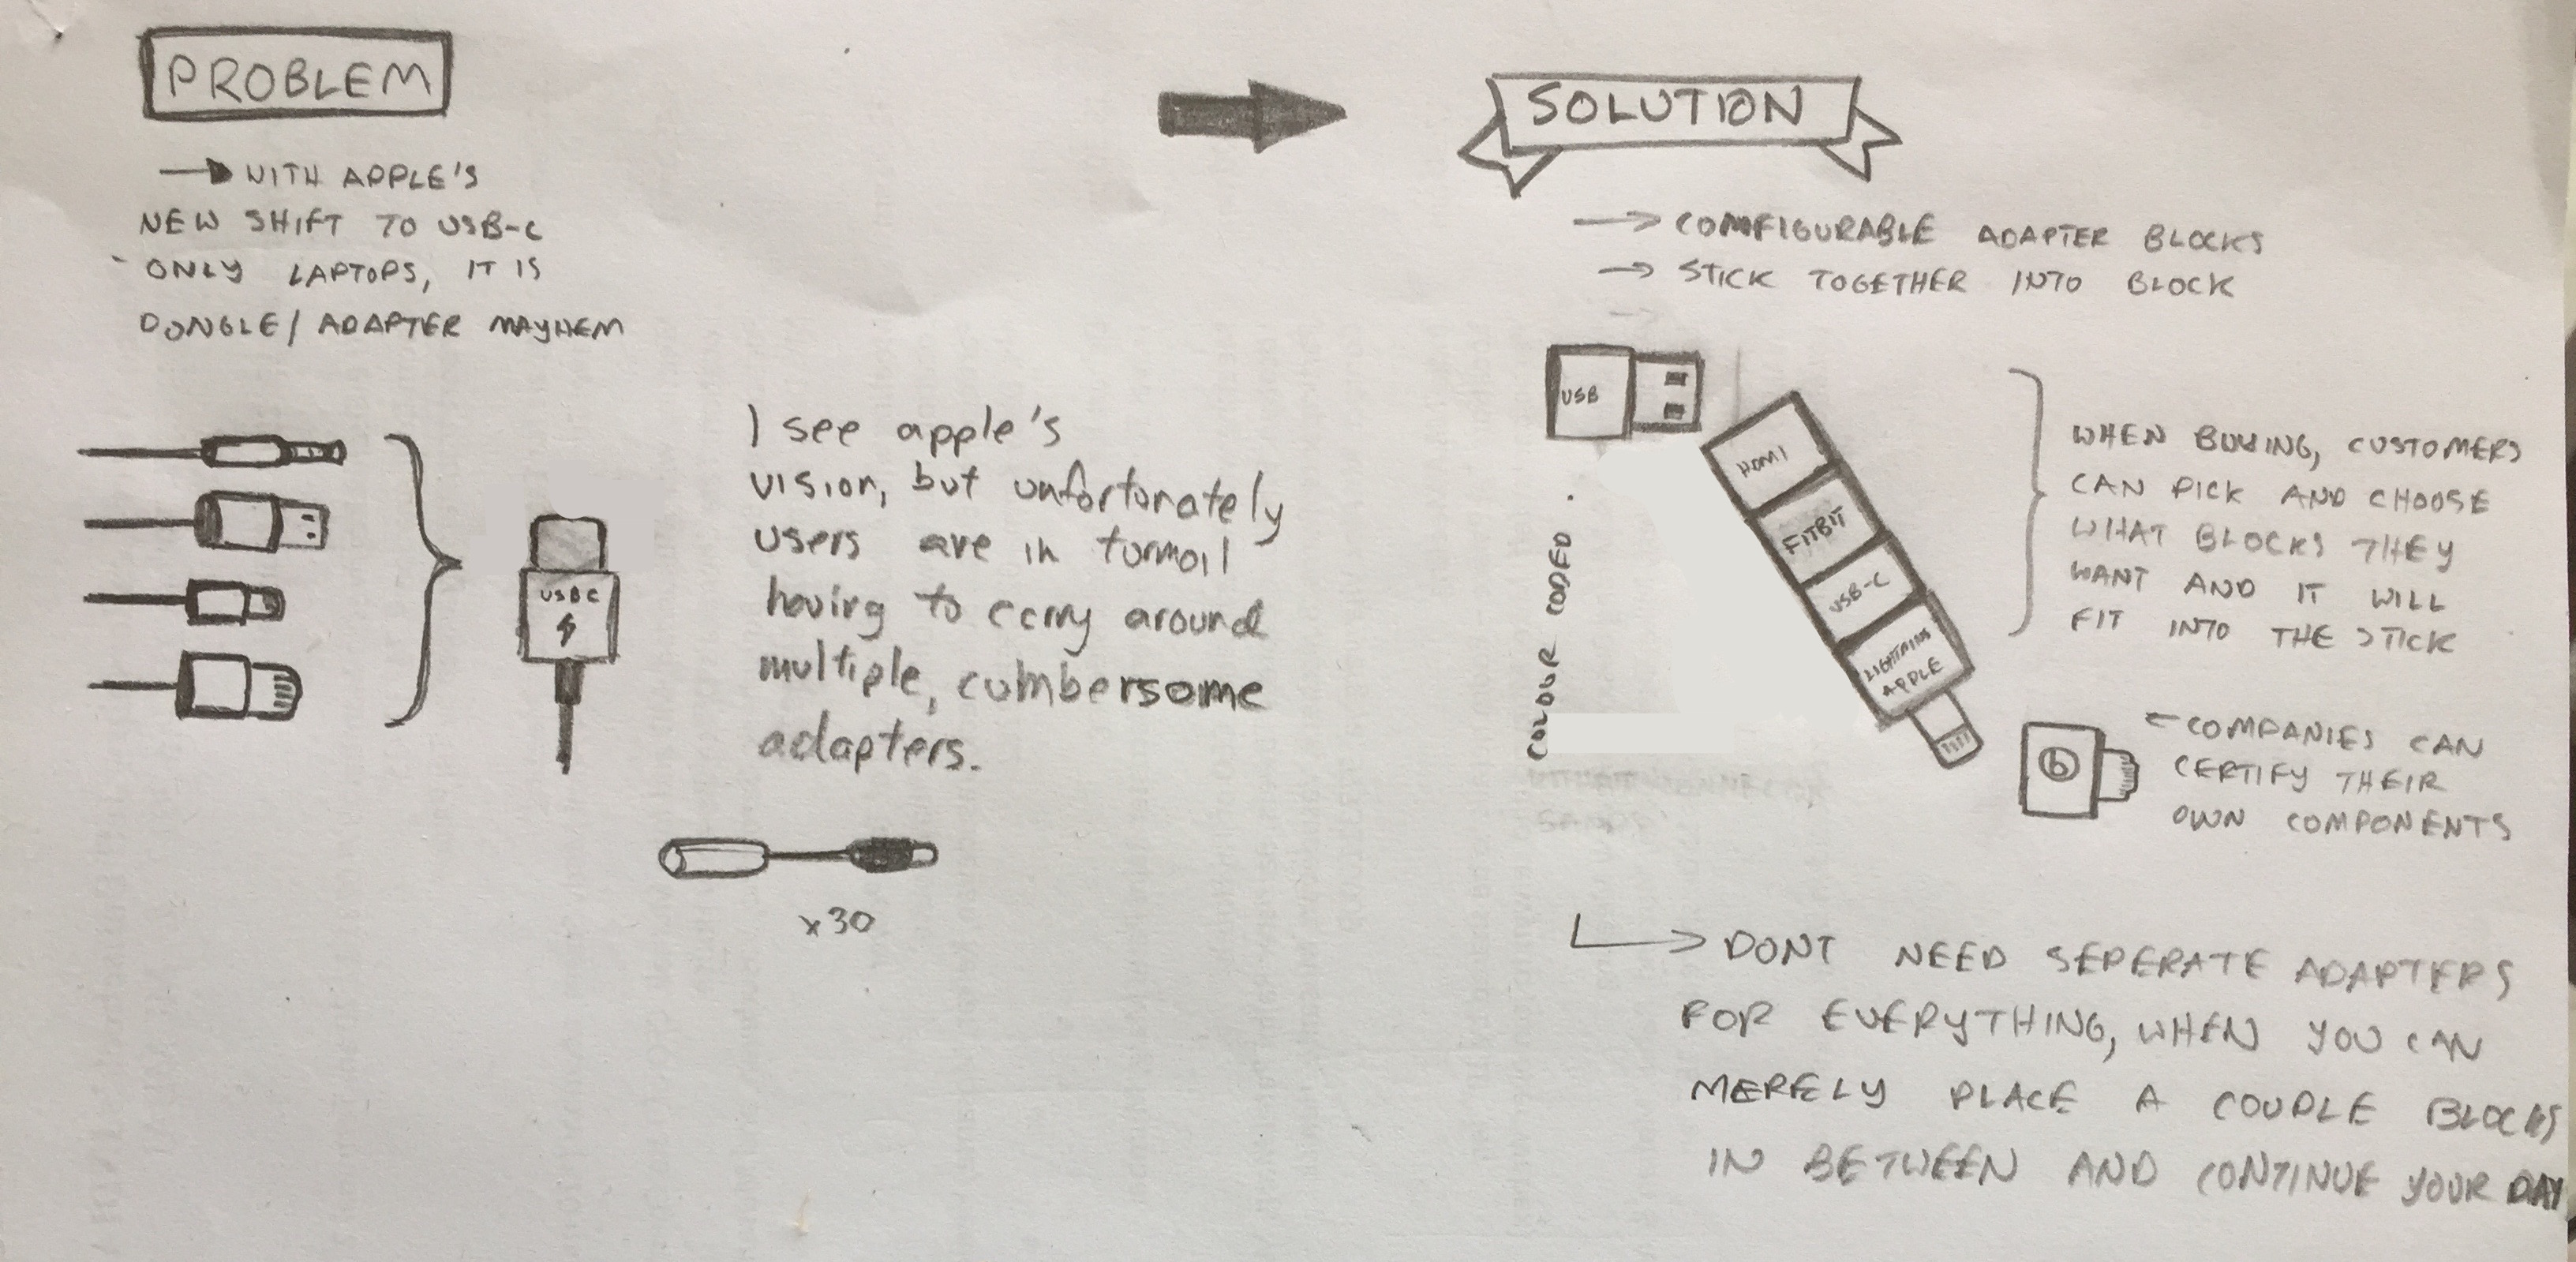 PROBLEM
WITH APPLE'S
NEW SHIFT TO USB-C
ONLY LAPTOPS, IT IS
DONGLE/ADAPTER MAYHEM
USB C
I see apple's
vision, but unfortunately
users are in turmoil
having to carry around
multiple, cumbersome
adapters.
x30
SOLUTION
CONFIGURABLE ADAPTER BLOCKS
STICK TOGETHER INTO BLOCK
USB
HDMI
FITBIT
USB-C
LIGHTNING
APPLE
COLOUR CODED.
WHEN BUYING, CUSTOMERS
CAN PICK AND CHOOSE
WHAT BLOCKS THEY
WANT AND IT WILL
FIT INTO THE STICK
b
COMPANIES CAN
CERTIFY THEIR
OWN COMPONENTS
DONT NEED SEPERATE ADAPTERS
FOR EVERYTHING, WHEN YOU CAN
MERELY PLACE A COUPLE BLOCKS
IN BETWEEN AND CONTINUE YOUR DAY